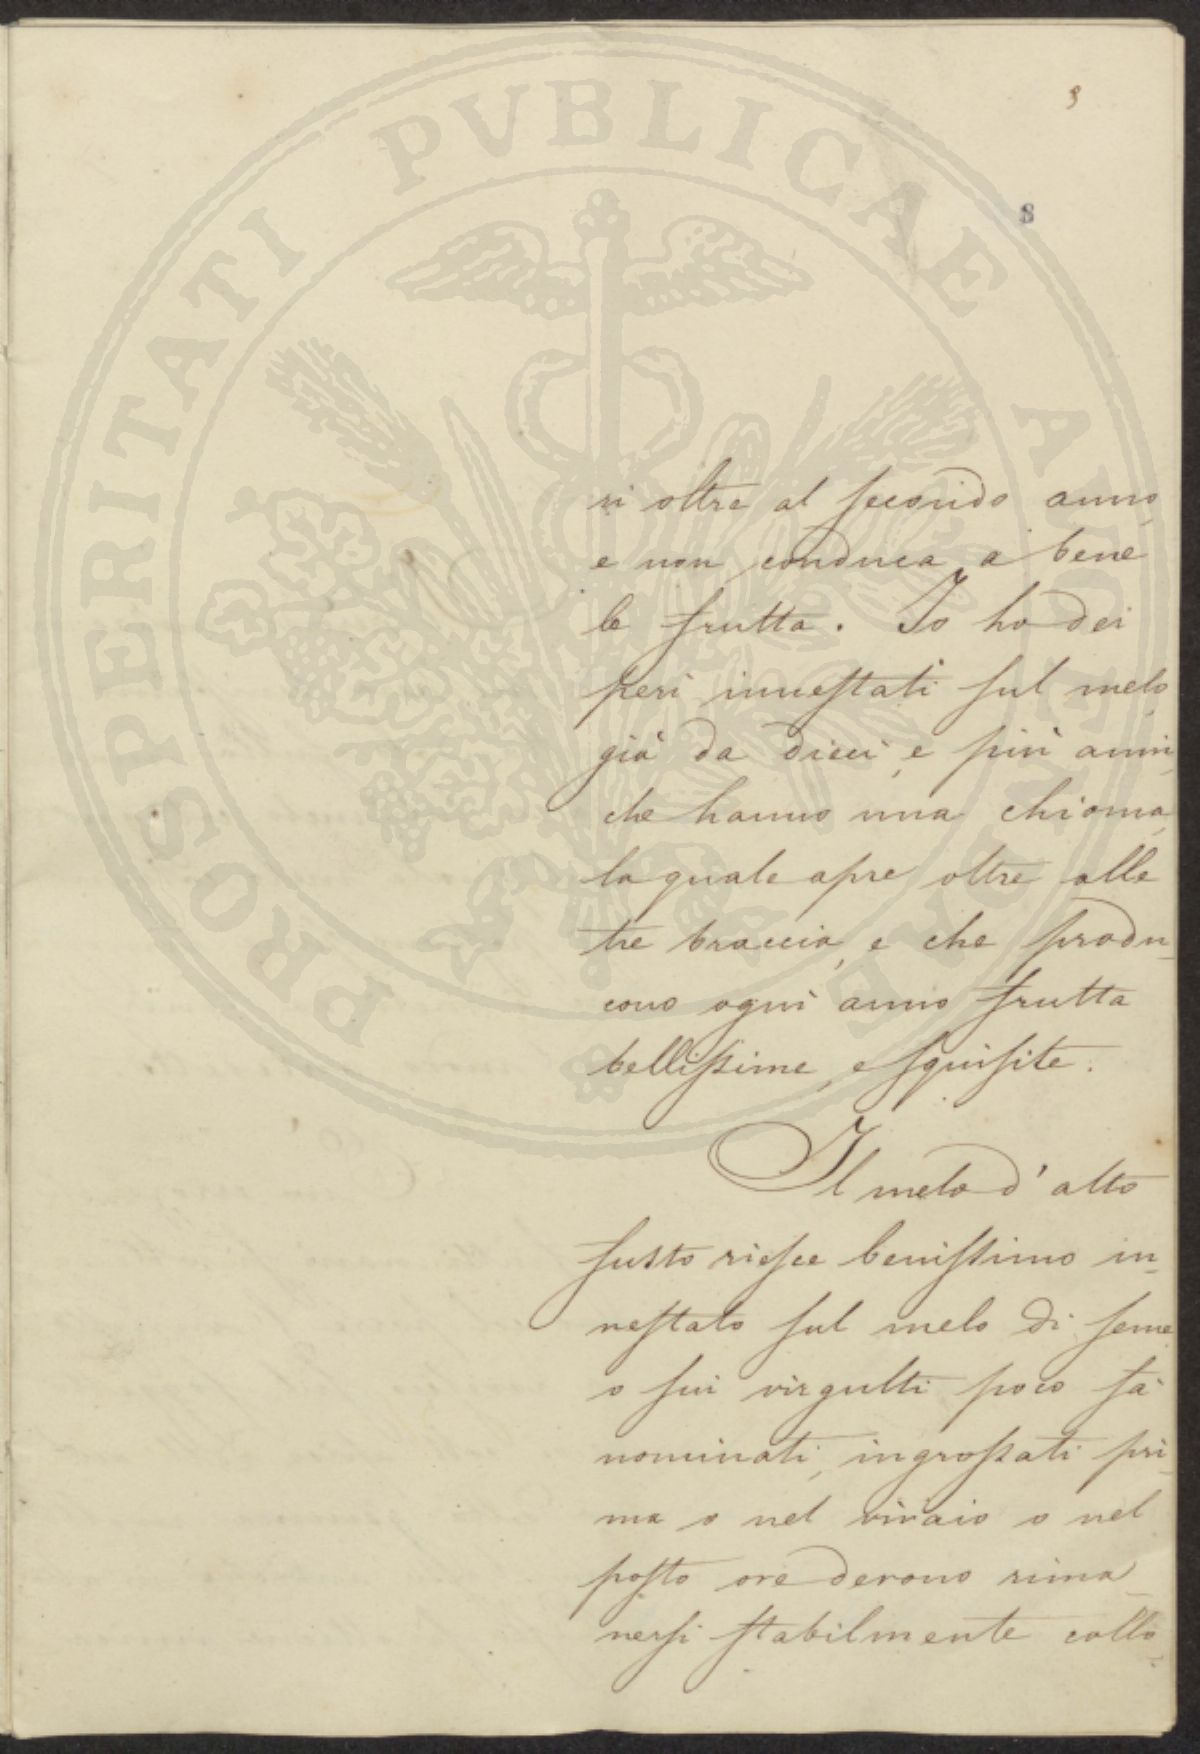 8
8
ri oltre al secondo anno,
e non conduca a bene
le frutta. Io ho dei
peri innestati sul melo
già da dieci, e più anni,
che hanno una chioma,
la quale apre oltre alle
tre braccia, e che produ-
cono ogni anno frutta
bellissime, e squisite.
Il melo d'alto
fusto riesce benissimo in-
nestato sul melo di seme
o sui virgulti poco fà
nominati, ingrossati pri-
ma o nel vivaio o nel
posto ove devono rima-
nersi stabilmente collo-
PROSPERITATI PVBLICAE AVGENDAE